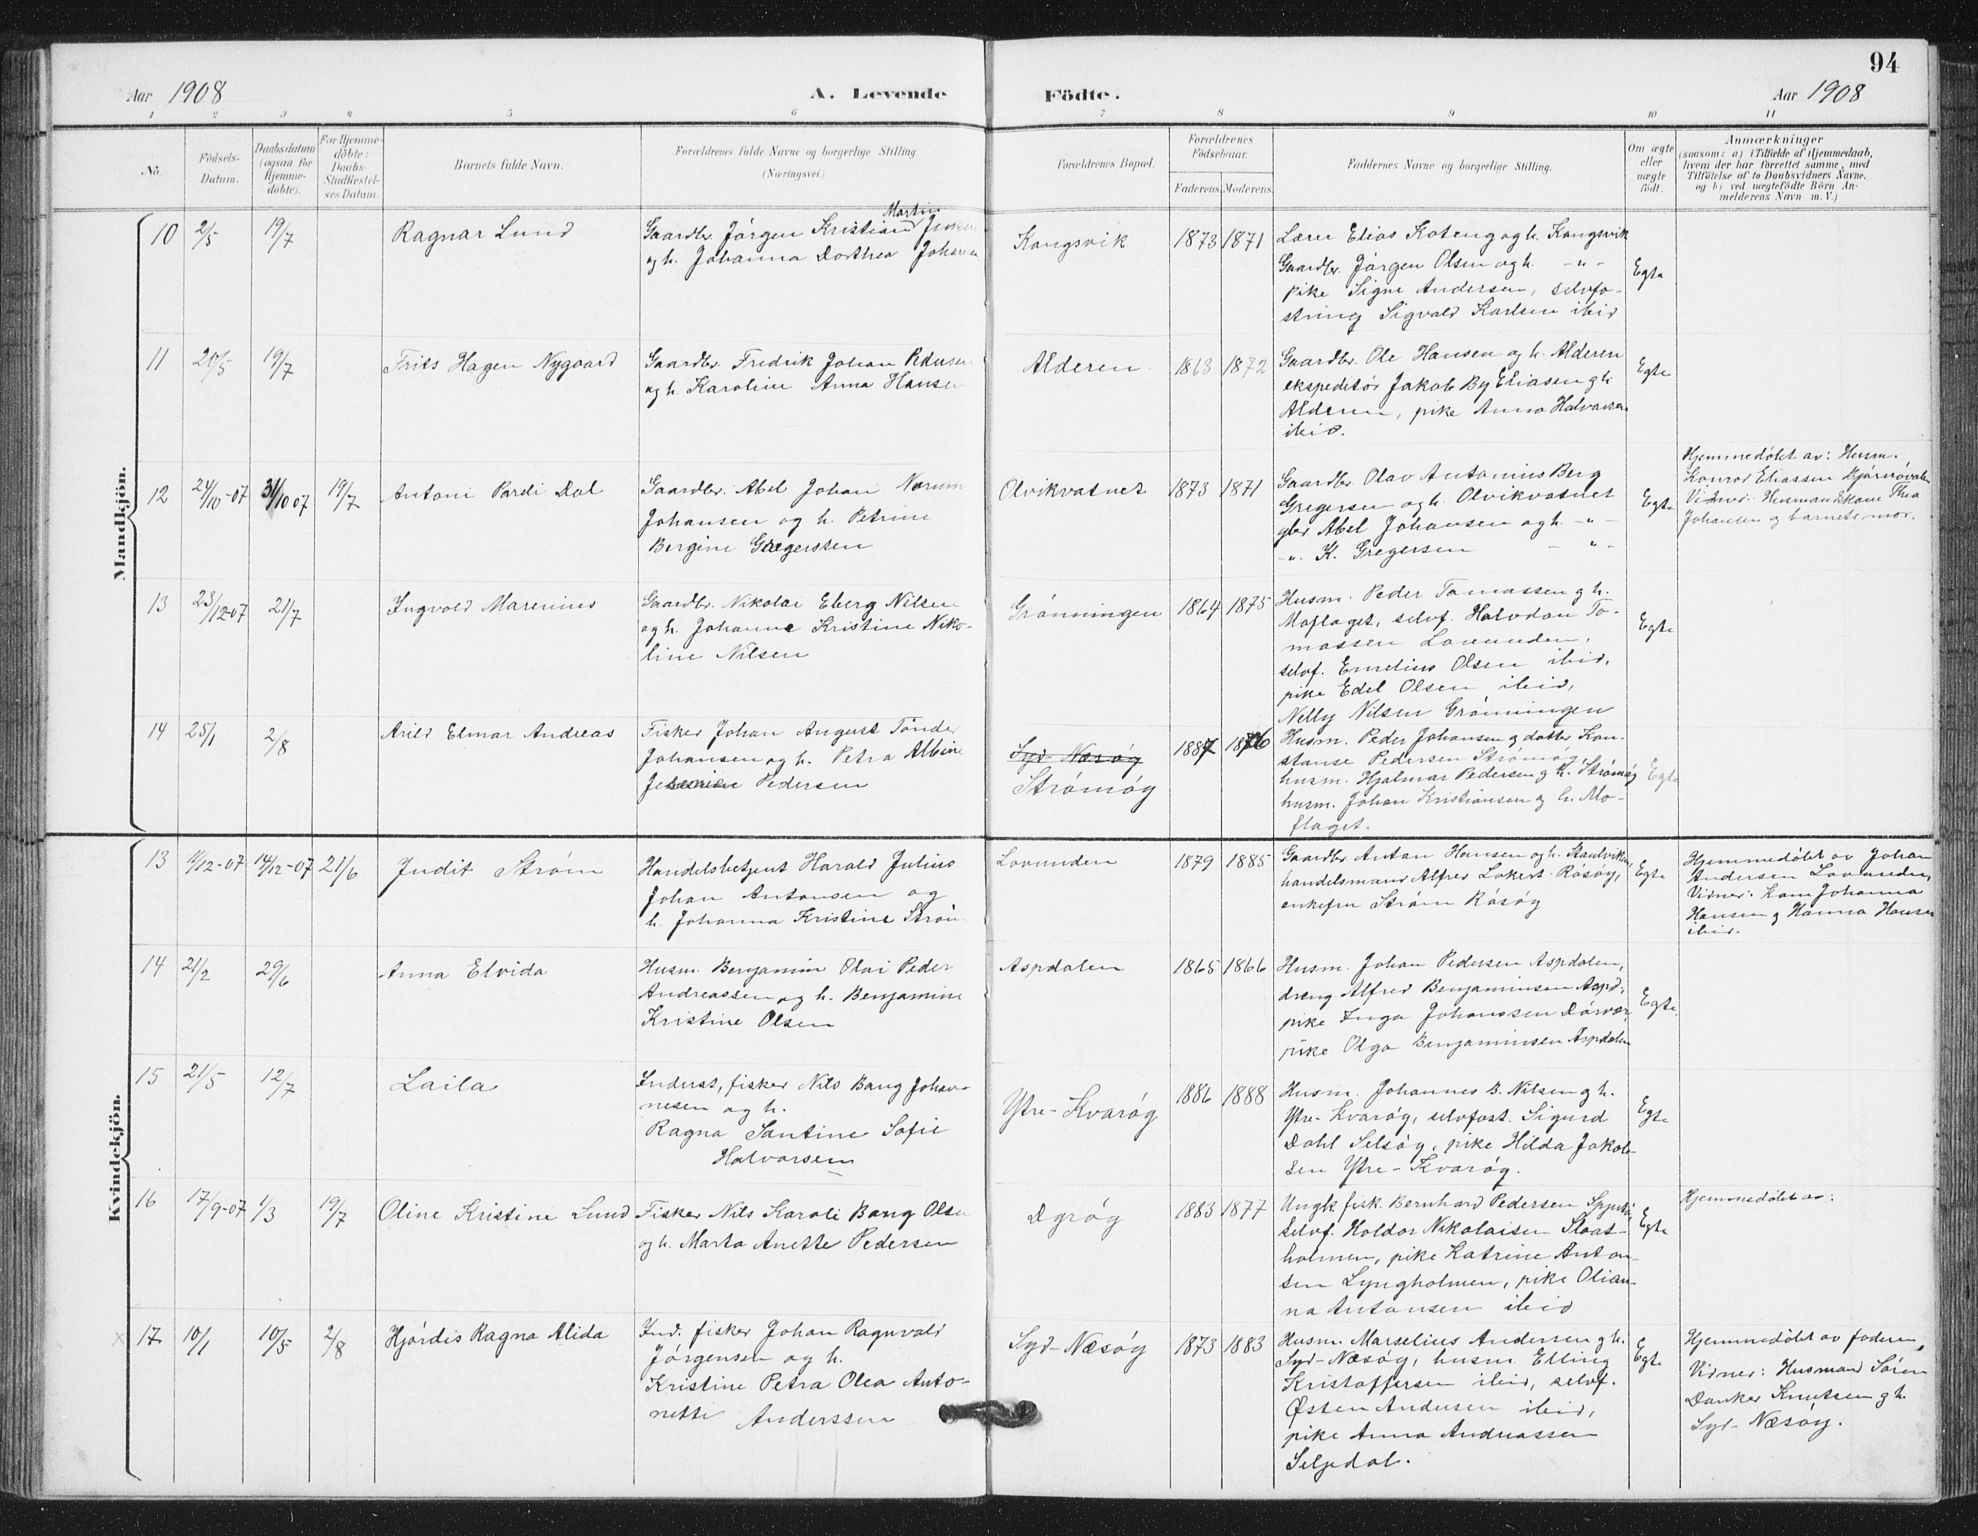 94
Aar 1908
A. Levende
Födte.
Aar 1908
1 2 3 4 5 6 7 8 9 10 11
No.
Födsels-
Datum.
Daabsdatum
(ogsaa för
Hjemme-
döbte).
For Hjemme-
döbte:
Daabs-
Stadfæstel-
ses Datum
Barnets fulde Navn.
Forældrenes fulde Navne og borgerlige Stilling.
(Næringsvei.)
Forældrenes Bopæl.
Forældrenes
Födselsaar.
Faderens. Moderens.
Faddernes Navne og borgerlige Stilling.
Om ægte
eller
uægte
födt.
Anmærkninger
(saasom: a) i Tilfælde af Hjemmedaab,
hvem der har forrettet samme, med
Tilföielse af to Daabsvidners Navne,
og b) ved uægtefödte Börn An-
melderens Navn m. V.)
Mandkjön.
10 2/5 19/7
Ragnar Lund
Martin
Gaardbr. Jørgen Kristian Jensen
og h. Johanna Dorthea
Kongsvik
1873 1871
Lærer Elias Koteng og h. Kongsvik
Gaardbr. Jørgen Olsen og h. -"-
pike Signe Andersen, selvfo-
string Sigvald Karlsen ibid
Egte
11 20/5 19/7
Frits Hagen Nygaard
Gaardbr. Fredrik Johan Pedersen
og h. Karoline Anna Hansen
Alderen
1863 1872
Gaardbr. Ole Hansen og h. Alderen
ekspeditør Jakob By Eliasen g h
Alderen, pike Anna Halvarsen
ibid.
Egte
12 24/10-07 31/10 07 19/7
Antoni Pardi Dal
Gaardbr. Abel Johan Narum
Johansen og h. Petrine
Bergine Gregerssen
Olvikvatnet
1873 1871
Gaardbr. Olav Antonius Berg
Gregersen og h. Olvikvatnet
gbr. Abel Johansen og h. -"-
-"- K. Gregersen -"-
Egte
Hjemmedøbt av: Husm.
Konrad Eliassen
Vidner: Husmandskone Thea
Johansen og barnets mor.
13 23/12-07 21/7
Ingvald Marenius
Gaardbr. Nikolai Eberg Nilsen
og h. Johanne Kristine Niko-
line Nilsen
Grønningen
1864 1875
Husm. Peder Tomassen g h.
Moflaget, selvf. Halvdan To-
massen Lovunden,
selvf. Emelius Olsen ibid,
pike Edel Olsen ibid,
Nelly Nilsen Grønningen
Egte
14 25/1 2/8
Arild Elmar Andreas
Fisker Johan August Tønder
Johansen og h. Petra Albine
Pedersen
Syd-Næsøy
Strømøy
1887 1876
Husm. Peder Johansen g datter Kon-
stanse Pedersen Strømøy
husm. Hjalmar Pedersen g h. Strømøy
husm. Johan Kristiansen g h. Mo-
flaget.
Egte
Kvindekjön.
13 11/12-07 14/12-07 21/6
Judit Strøm
Handelsbetjent Harald Julius
Johan Antonsen og
h. Johanna Kristine Strøm
Lovunden
1879 1885
Gaardbr Anton Hansen og h.
handelsmand Alfred Lokert Råsøy,
enkefru Strøm Råsøy
Egte
Hjemmedøbt av Johan
Andersen Lovunden,
Vidner: Kone Johanna
Hansen g Hanna Hansen
ibid.
14 21/2 29/6
Anna Elvida
Husm. Benjamin Olai Peder
Andreassen og h. Benjamine
Kristine Olsen
Aspdalen
1865 1866
Husm. Johan Pedersen Aspdalen,
dreng Alfred Benjaminsen Aspd.
pike Inga Johanssen Dørvær,
pike Olga Benjaminsen Aspdalen
Egte
15 21/5 12/7
Laila
Inderst, fisker Nils Bang Johan-
nesen og h.
Ragna Santine Sofie
Halvorsen
Ytre-Kvarøy
1886 1888
Husm. Johannes B. Nilsen g h.
Ytre-Kvarøy, selvfost. Sigurd
Dahl Selsøy, pike Hilda Jakob-
sen Ytre-Kvarøy.
Egte
16 17/9-07 1/3 19/7
Oline Kristine Lund
Fisker Nils Karoli Bang Olsen
og h. Marta Anette Pedersen
Dgrøy
1883 1877
Ungk. fisk. Bernhard Pedersen
Selvf. Haldor Nikolaisen Slaat-
holmen, pike Katrine Anton-
sen Lyngholmen, pike Olian-
na Antonsen ibid
Egte
Hjemmedøbt av:
17 10/1 10/5 2/8
Hjørdis Ragna Alida
Ind. fisker Johan Ragnvald
Jørgensen og h.
Kristine Petra Olea Anto-
nette Anderssen
Syd-Næsøy
1873 1883
Husm. Marselius Andersen g h.
Syd-Næsøy, husm. Elling
Kristoffersen ibid, selvf.
Østen Andersen ibid,
pike Anna Andreassen
Seljedal.
Egte
Hjemmedøbt av faderen,
Vidner: Husmand Søren
Danker Knutsen g h.
Syd-Næsøy.